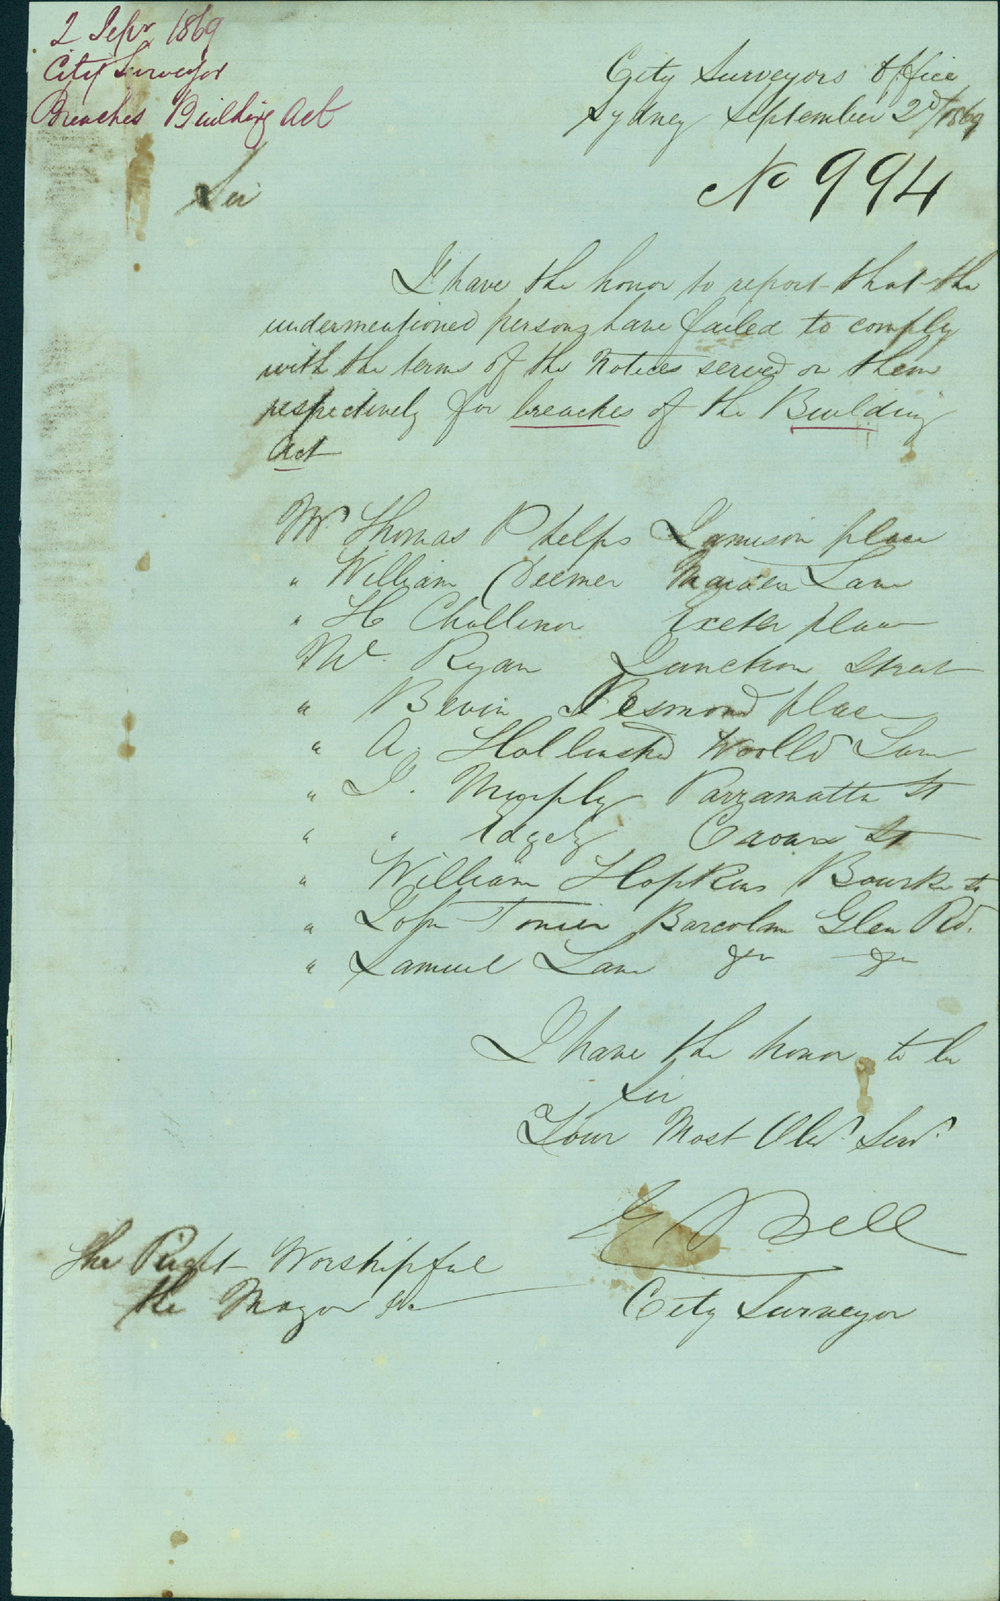 2 Sepr 1869
City Surveyor
Breaches Building Act
City Surveyors Office
Sydney September 2d/1869
No 994
Sir
I have the honor to report that the
undermentioned persons have failed to comply
with the terms of the Notices served on them
respectively for breaches of the Building
Act
Mr Thomas Phelps Jamison place
" William Deemer Maiden Lane
" H Challinor Exeter place
Mr. Ryan Junction Street
" Bevin Desmond place
" A. Hollinshed Woolld Lane
" J. Murphy Parramatta St
" " Edgely Crown St
" William Hopkins Bourke St
" John Barcolm Glen Rd.
" Samuel Lane Do Do
I have the honor to be
Sir
Your Most Obdt. Servt.
E Bell
City Surveyor
The Right Worshipful
the Mayor &c